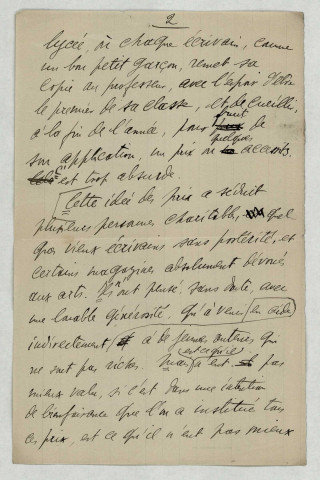 2
lycée, où chaque écrivain, comme
un bon petit garçon, remet sa
copie au professeur, avec l'espoir d'être
le premier de sa classe, et de cueillir,
à la fin de l'année, pour fruit de
son application, un prix ou quelques accessits.
C'est trop absurde.
Cette idée des prix a séduit
plusieurs personnes charitables, quel
ques vieux écrivains sans postérité, et
certains magazines absolument dévoués
aux arts. Ils ont pensé, sans doute, avec
une louable générosité, qu'à venir en aide
indirectement, à de jeunes auteurs, qui
ne sont pas riches. Mais est-ce qu'il n'eut pas
mieux valu, si c'est dans une intention
de bienfaisance que l'on a institué tous
ces prix, est ce qu'il n'eut pas mieux